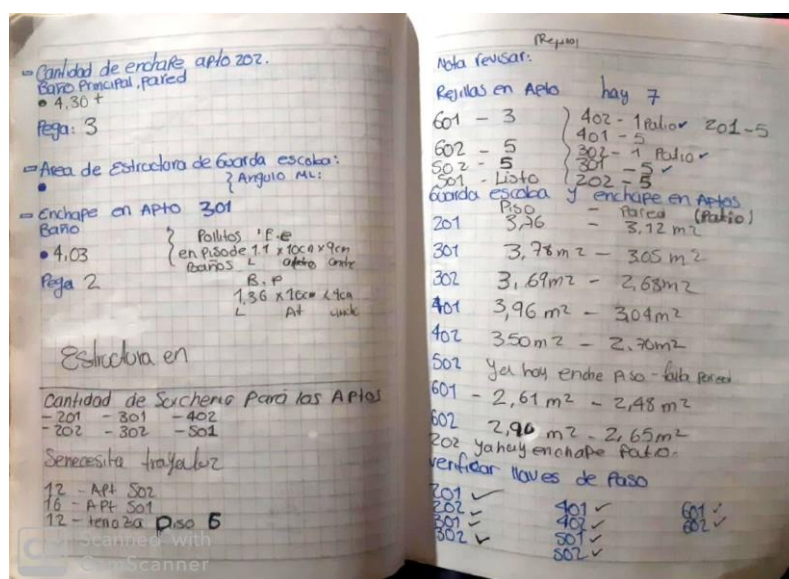 - Cantidad de enchape apto 202.
Baño Principal, pared
• 4,30 +
Pega: 3
- Area de Estructura de Guarda escoba:
• } Angulo ML:
- Enchape en Apto 301
Baño
• 4,03
Pega 2
Pollitos P.e
en piso de 1.1 x 10cm x 9cm
Baños L
B.P
1,36 x 10cm x 9cm
L At
Estructura en
Cantidad de para los Aptos
- 201 - 301 - 402
- 202 - 302 - 501
Se necesita
12 - Apt 502
16 - Apt 501
12 - Piso 6
CS Scanned with
CamScanner
Nota revisar:
Rejillas en Apto hay 7
601 - 3
602 - 5
502 - 5
501 - Listo
402 - 1 Patio ✓ 201-5
401 - 5
302 - 1 Patio ✓
301 - 5 ✓
202 - 5
Guarda escoba y enchape en Aptos
Piso = Pared (Patio)
201 3,76 = 3,12 m2
301 3,78 m2 - 3.05 m2
302 3,69m2 - 2,68m2
401 3,96 m2 - 3,04m2
402 3.50m2 - 2.70m2
502 ya hay Piso - falta Pared
601 - 2,61 m2 - 2,48 m2
602 2,90 m2 - 2,65m2
202 ya hay enchape Patio.
verificar llaves de Paso
201 ✓
202 ✓
301 ✓
302 ✓
401 ✓
402 ✓
501 ✓
502 ✓
601 ✓
602 ✓